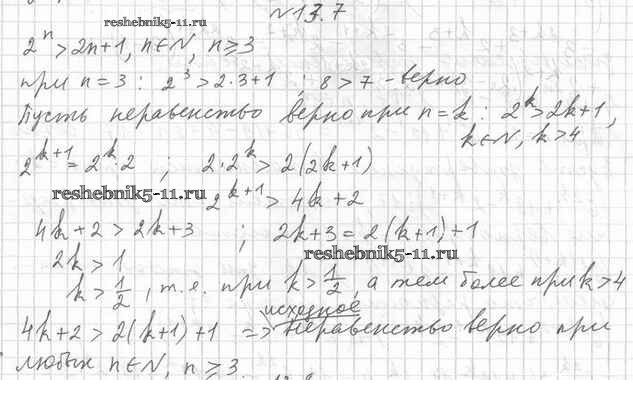 №13.7
reshebnik5-11.ru
2ⁿ > 2n+1, n∈N, n⩾3
при n=3 : 2³ > 2·3+1 ; 8 > 7 - верно
Пусть неравенство верно при n=k : 2ᵏ > 2k+1,
k∈N, k>4
2ᵏ⁺¹ = 2ᵏ·2 ; 2·2ᵏ > 2(2k+1)
reshebnik5-11.ru
2ᵏ⁺¹ > 4k+2
4k+2 > 2k+3 ; 2k+3 = 2(k+1)+1
reshebnik5-11.ru
2k > 1
k > 1/2, т.е. при k > 1/2, а тем более при k>4
исходное
4k+2 > 2(k+1)+1 => неравенство верно при
любых n∈N, n⩾3